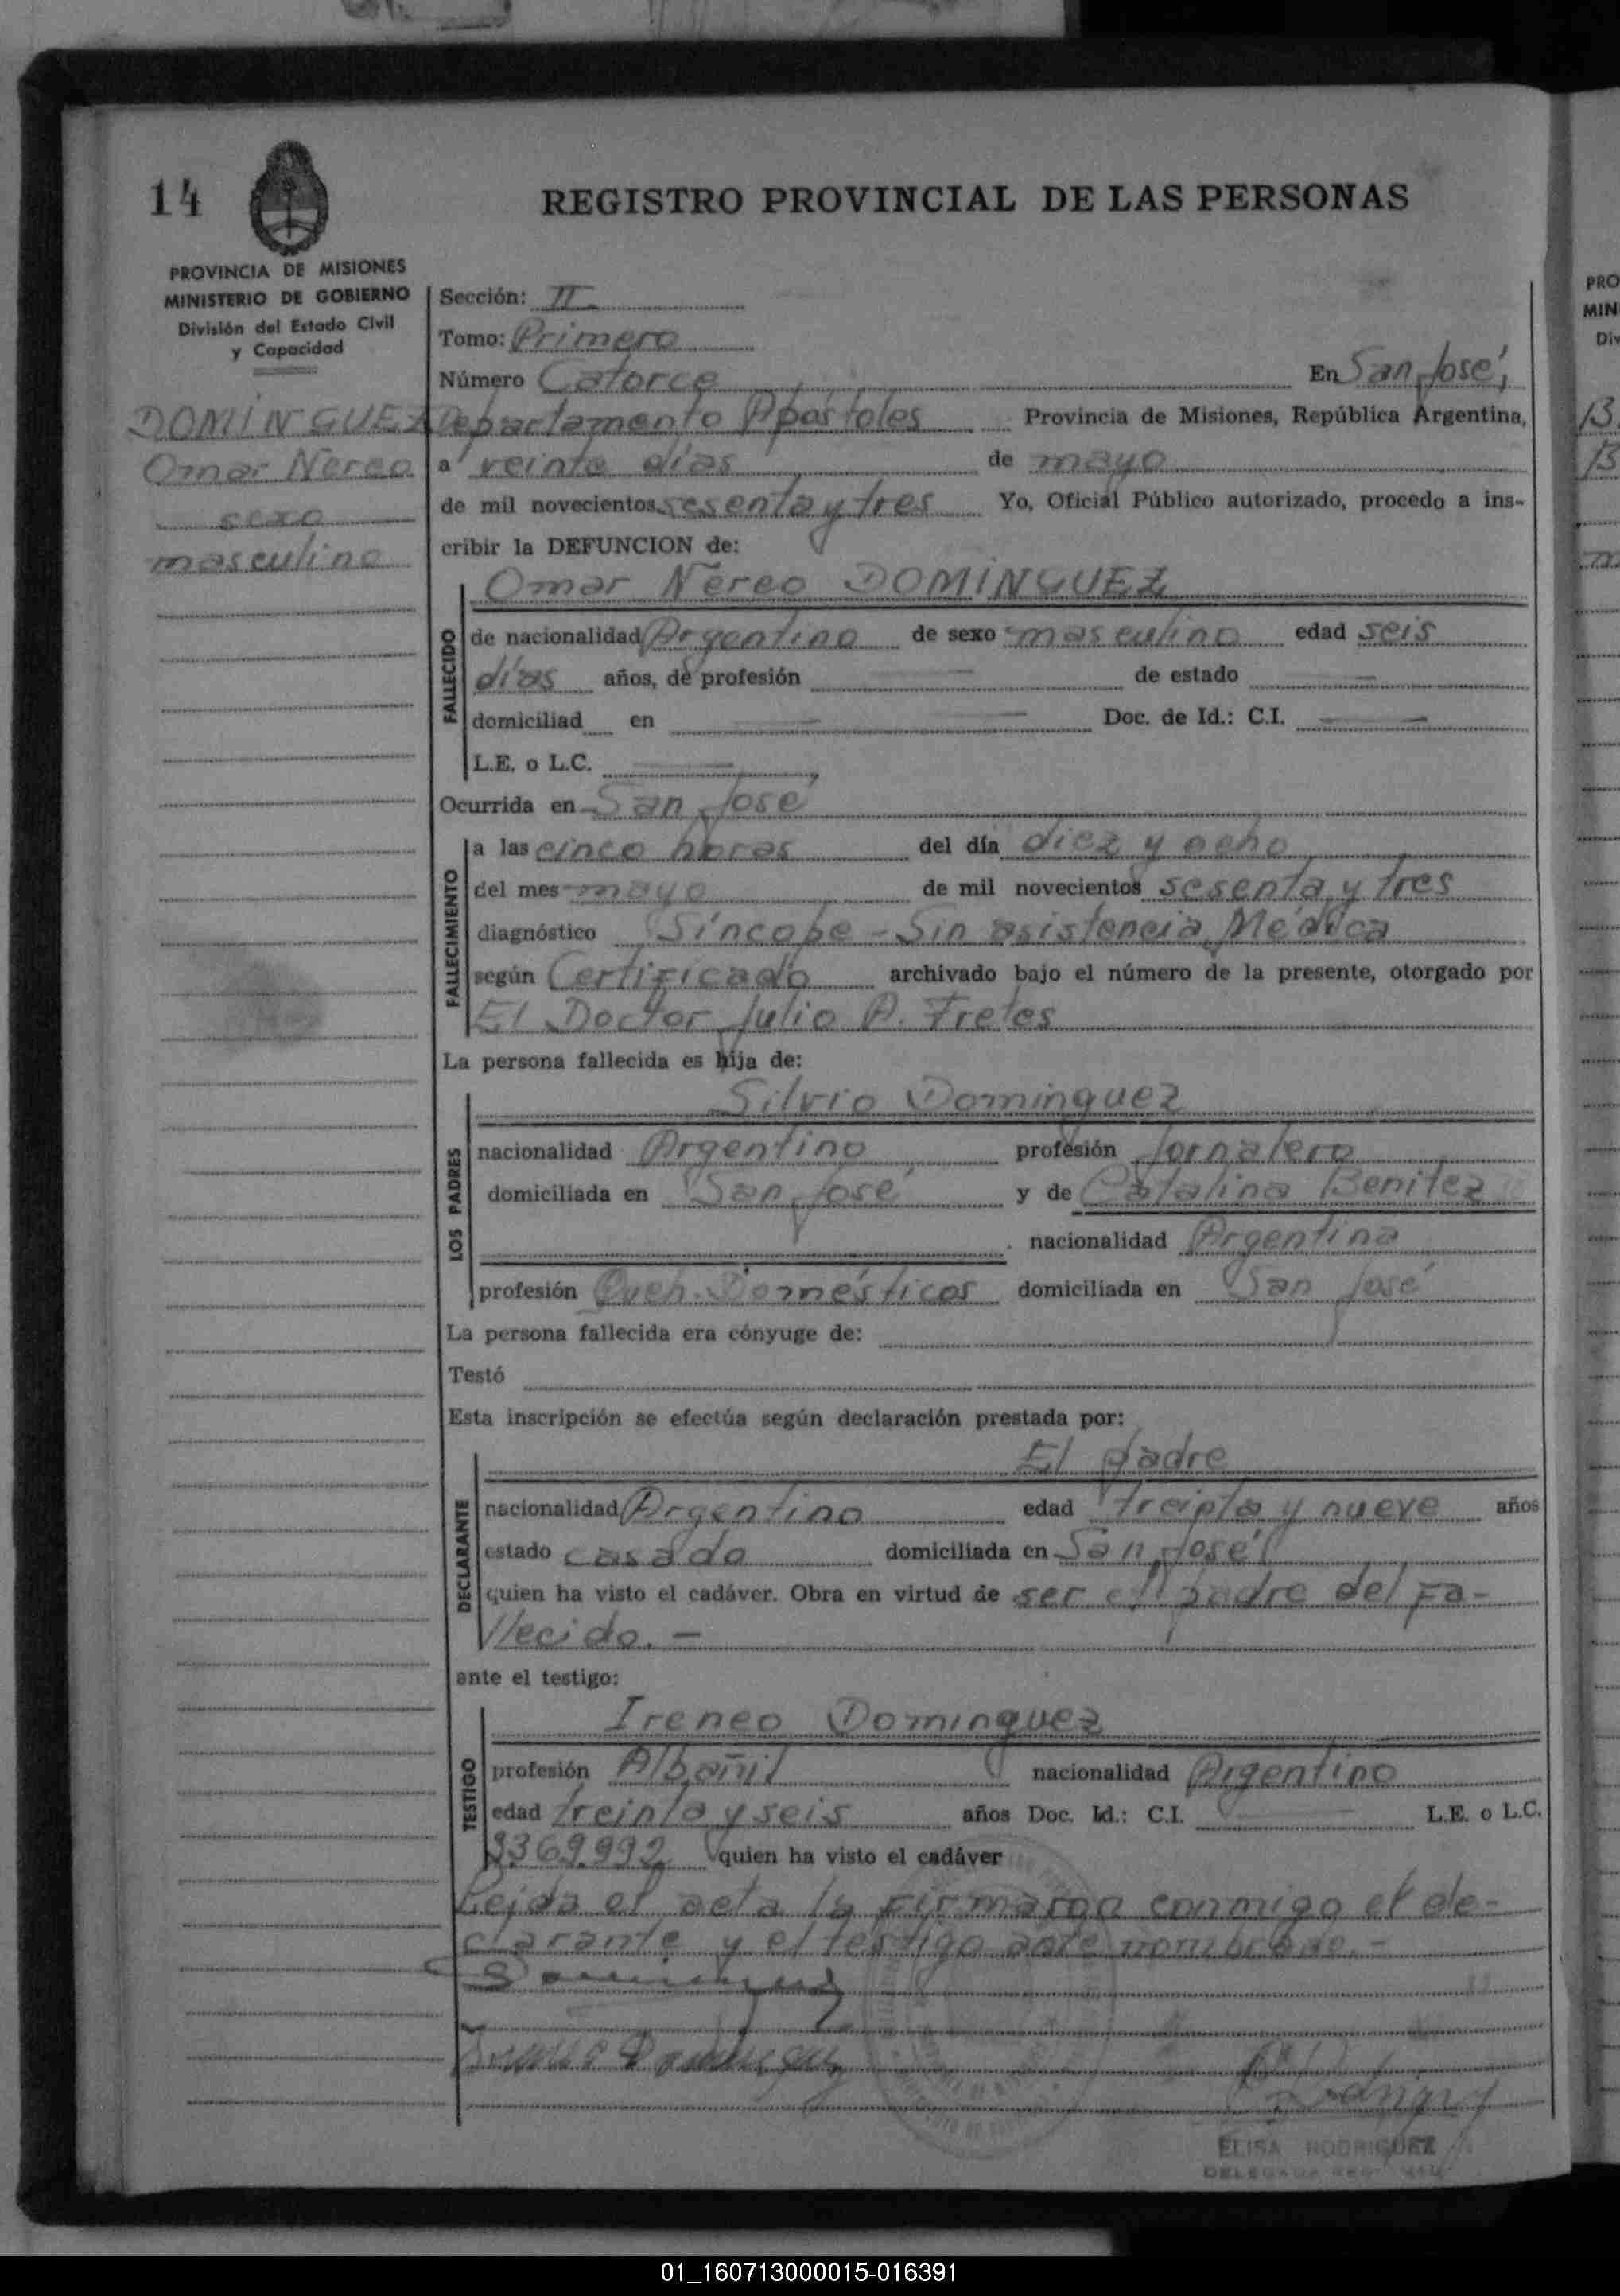 14
REGISTRO PROVINCIAL DE LAS PERSONAS
PROVINCIA DE MISIONES
MINISTERIO DE GOBIERNO
División del Estado Civil
y Capacidad
DOMINGUEZ
Omar Nereo
sexo
masculino
Sección: II
Tomo: Primero
Número Catorce En San José,
Departamento Apóstoles Provincia de Misiones, República Argentina,
a veinte días de mayo
de mil novecientos sesenta y tres Yo, Oficial Público autorizado, procedo a ins-
cribir la DEFUNCION de:
FALLECIDO
Omar Nereo DOMINGUEZ
de nacionalidad Argentino de sexo masculino edad seis
días años, de profesión — de estado —
domiciliad en — — Doc. de Id.: C.I. —
L.E. o L.C. —
Ocurrida en San José
FALLECIMIENTO
a las cinco horas del día diez y ocho
del mes mayo de mil novecientos sesenta y tres
diagnóstico Síncope - Sin asistencia Médica
según Certificado archivado bajo el número de la presente, otorgado por
El Doctor Julio A. Fretes
La persona fallecida es hija de:
LOS PADRES
Silvio Dominguez
nacionalidad Argentino profesión Jornalero
domiciliada en San José y de Catalina Benitez
nacionalidad Argentina
profesión Queh. Domésticos domiciliada en San José
La persona fallecida era cónyuge de:
Testó
Esta inscripción se efectúa según declaración prestada por:
DECLARANTE
El padre
nacionalidad Argentino edad treinta y nueve años
estado casado domiciliada en San José
quien ha visto el cadáver. Obra en virtud de ser el padre del fa-
llecido. -
ante el testigo:
TESTIGO
Ireneo Dominguez
profesión Albañil nacionalidad Argentino
edad treinta y seis años Doc. Id.: C.I. — L.E. o L.C.
3369.992 quien ha visto el cadáver
Leida el acta la firmaron conmigo el de-
clarante y el testigo ante nombrado. -
Dominguez
Ireneo Dominguez
ELISA RODRIGUEZ
PRO
MIN
Div
01_160713000015-016391